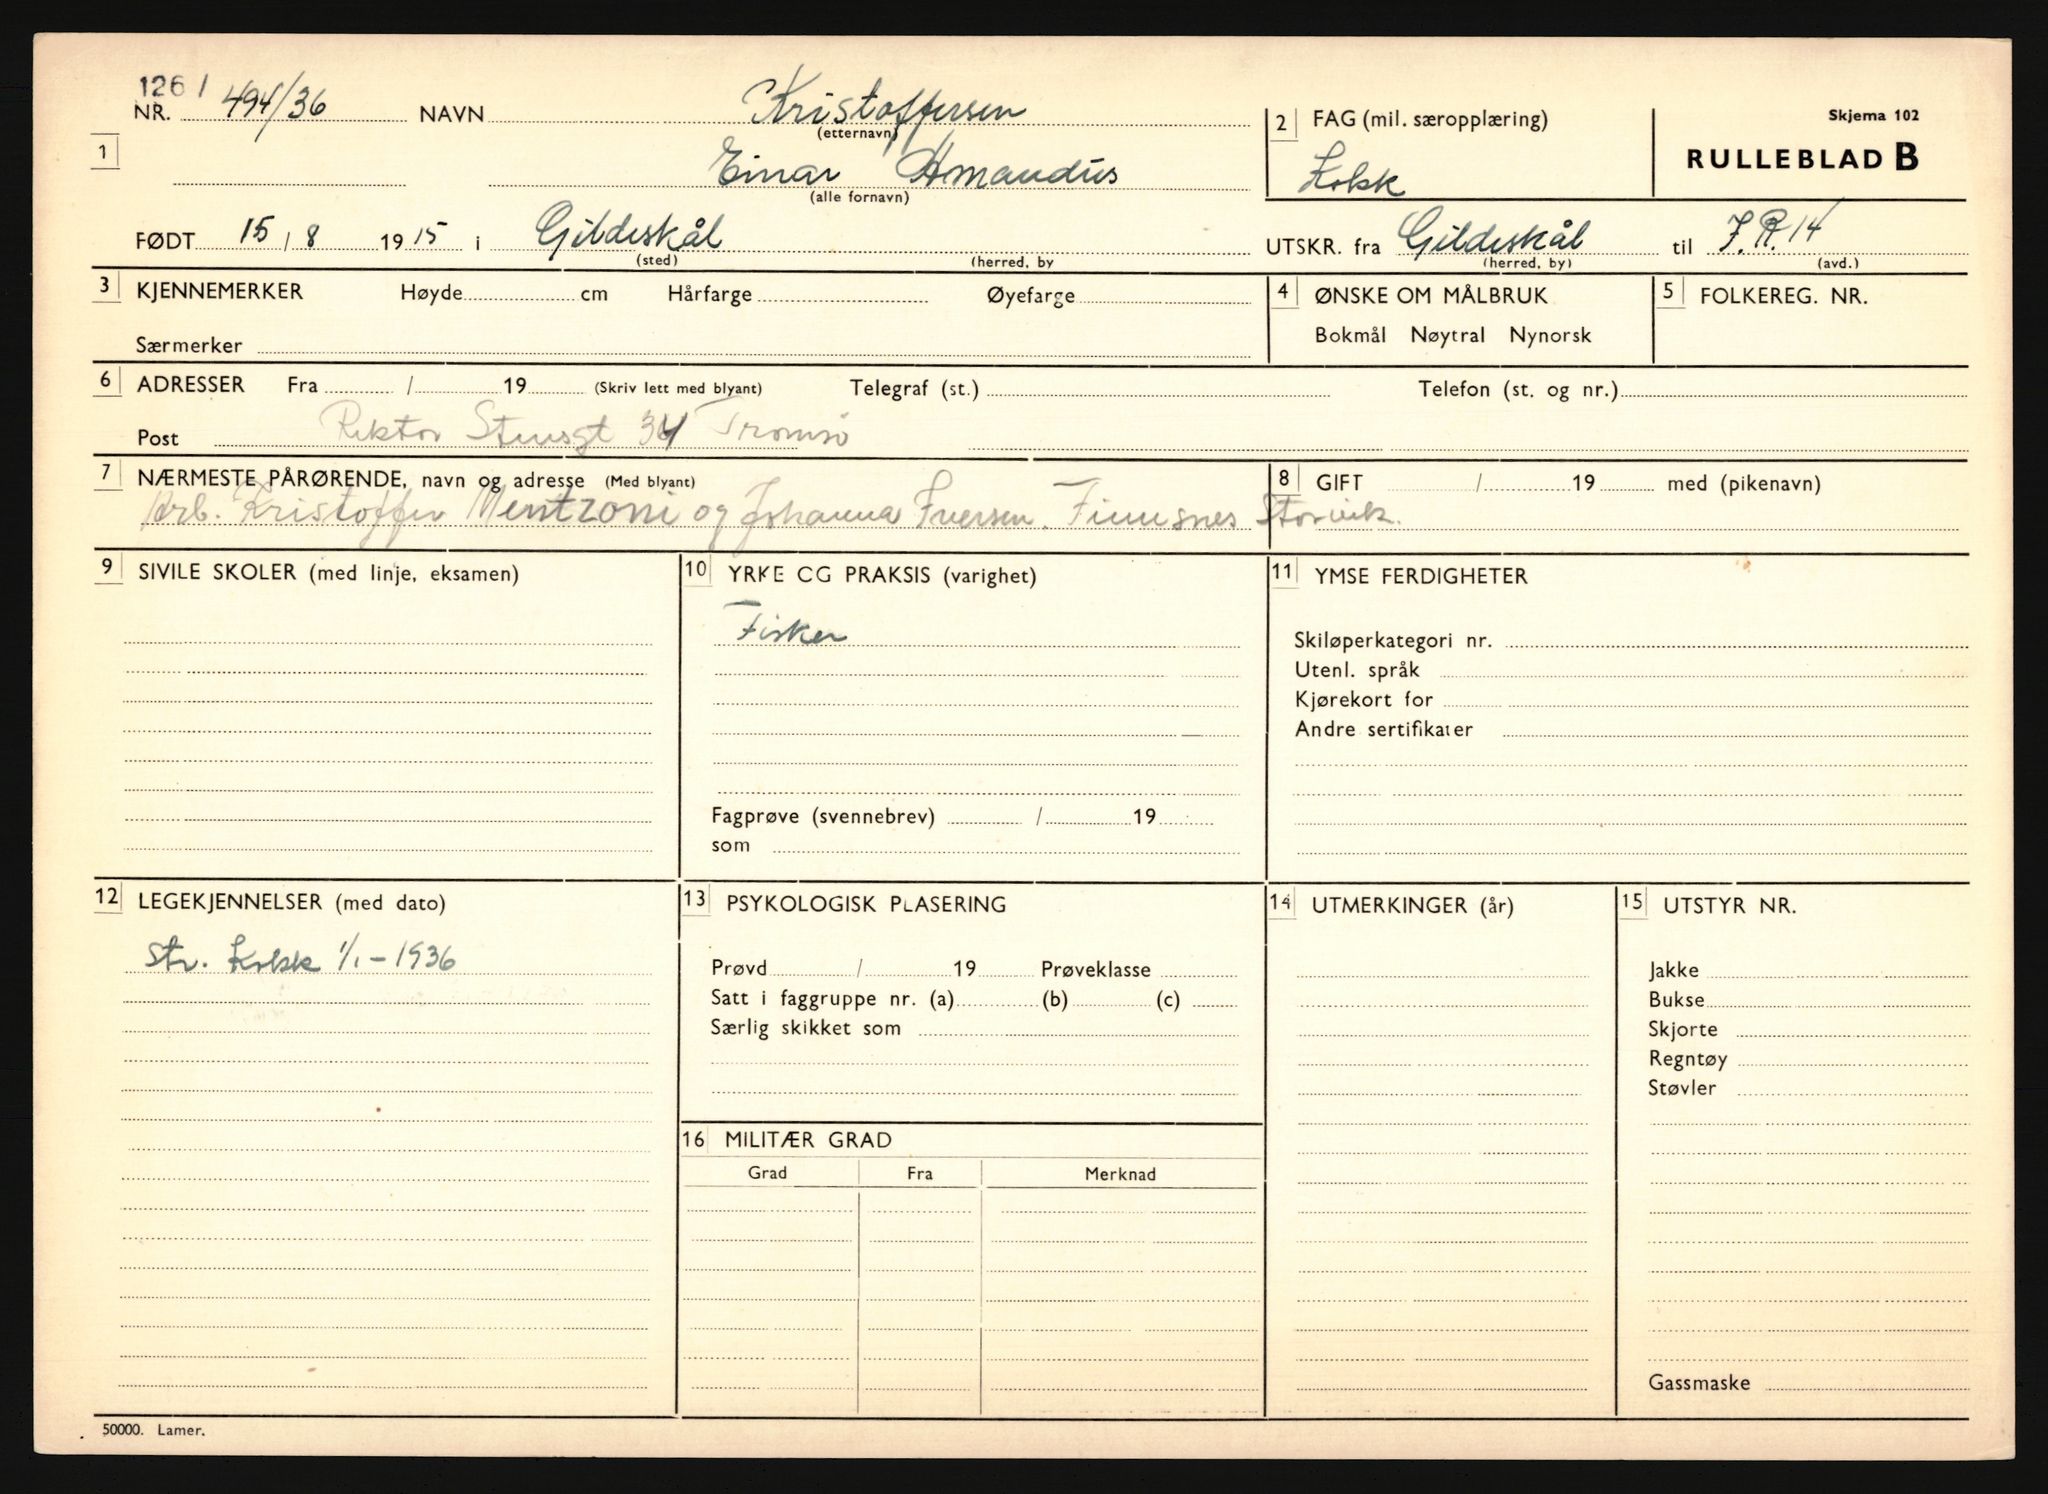 126 /
NR. 494/36 NAVN Kristoffersen
(etternavn)
1
Einar Amandus
(alle fornavn)
2 FAG (mil. særopplæring)
Kolsk
Skjema 102
RULLEBLAD B
FØDT 15 / 8 1915 i Gildeskål
(sted) (herred, by
UTSKR. fra Gildeskål til J.R. 14
(herred, by) (avd.)
3 KJENNEMERKER Høyde cm Hårfarge Øyefarge
Særmerker
4 ØNSKE OM MÅLBRUK
Bokmål Nøytral Nynorsk
5 FOLKEREG. NR.
6 ADRESSER Fra / 19 (Skriv lett med blyant) Telegraf (st.) Telefon (st. og nr.)
Post Rektor Stensgt 34 Tromsø
7 NÆRMESTE PÅRØRENDE, navn og adresse (Med blyant)
8 GIFT / 19 med (pikenavn)
Arb. Kristoffer Mentzoni og Johanna Iversen. Finnsnes Storvik.
9 SIVILE SKOLER (med linje, eksamen)
10 YRKE OG PRAKSIS (varighet)
Fisker
Fagprøve (svennebrev) / 19
som
11 YMSE FERDIGHETER
Skiløperkategori nr.
Utenl. språk
Kjørekort for
Andre sertifikater
12 LEGEKJENNELSER (med dato)
Str. Kolsk 1/1 - 1936
13 PSYKOLOGISK PLASERING
Prøvd / 19 Prøveklasse
Satt i faggruppe nr. (a) (b) (c)
Særlig skikket som
14 UTMERKINGER (år)
15 UTSTYR NR.
Jakke
Bukse
Skjorte
Regntøy
Støvler
Gassmaske
16 MILITÆR GRAD
Grad Fra Merknad
50000. Lamer.